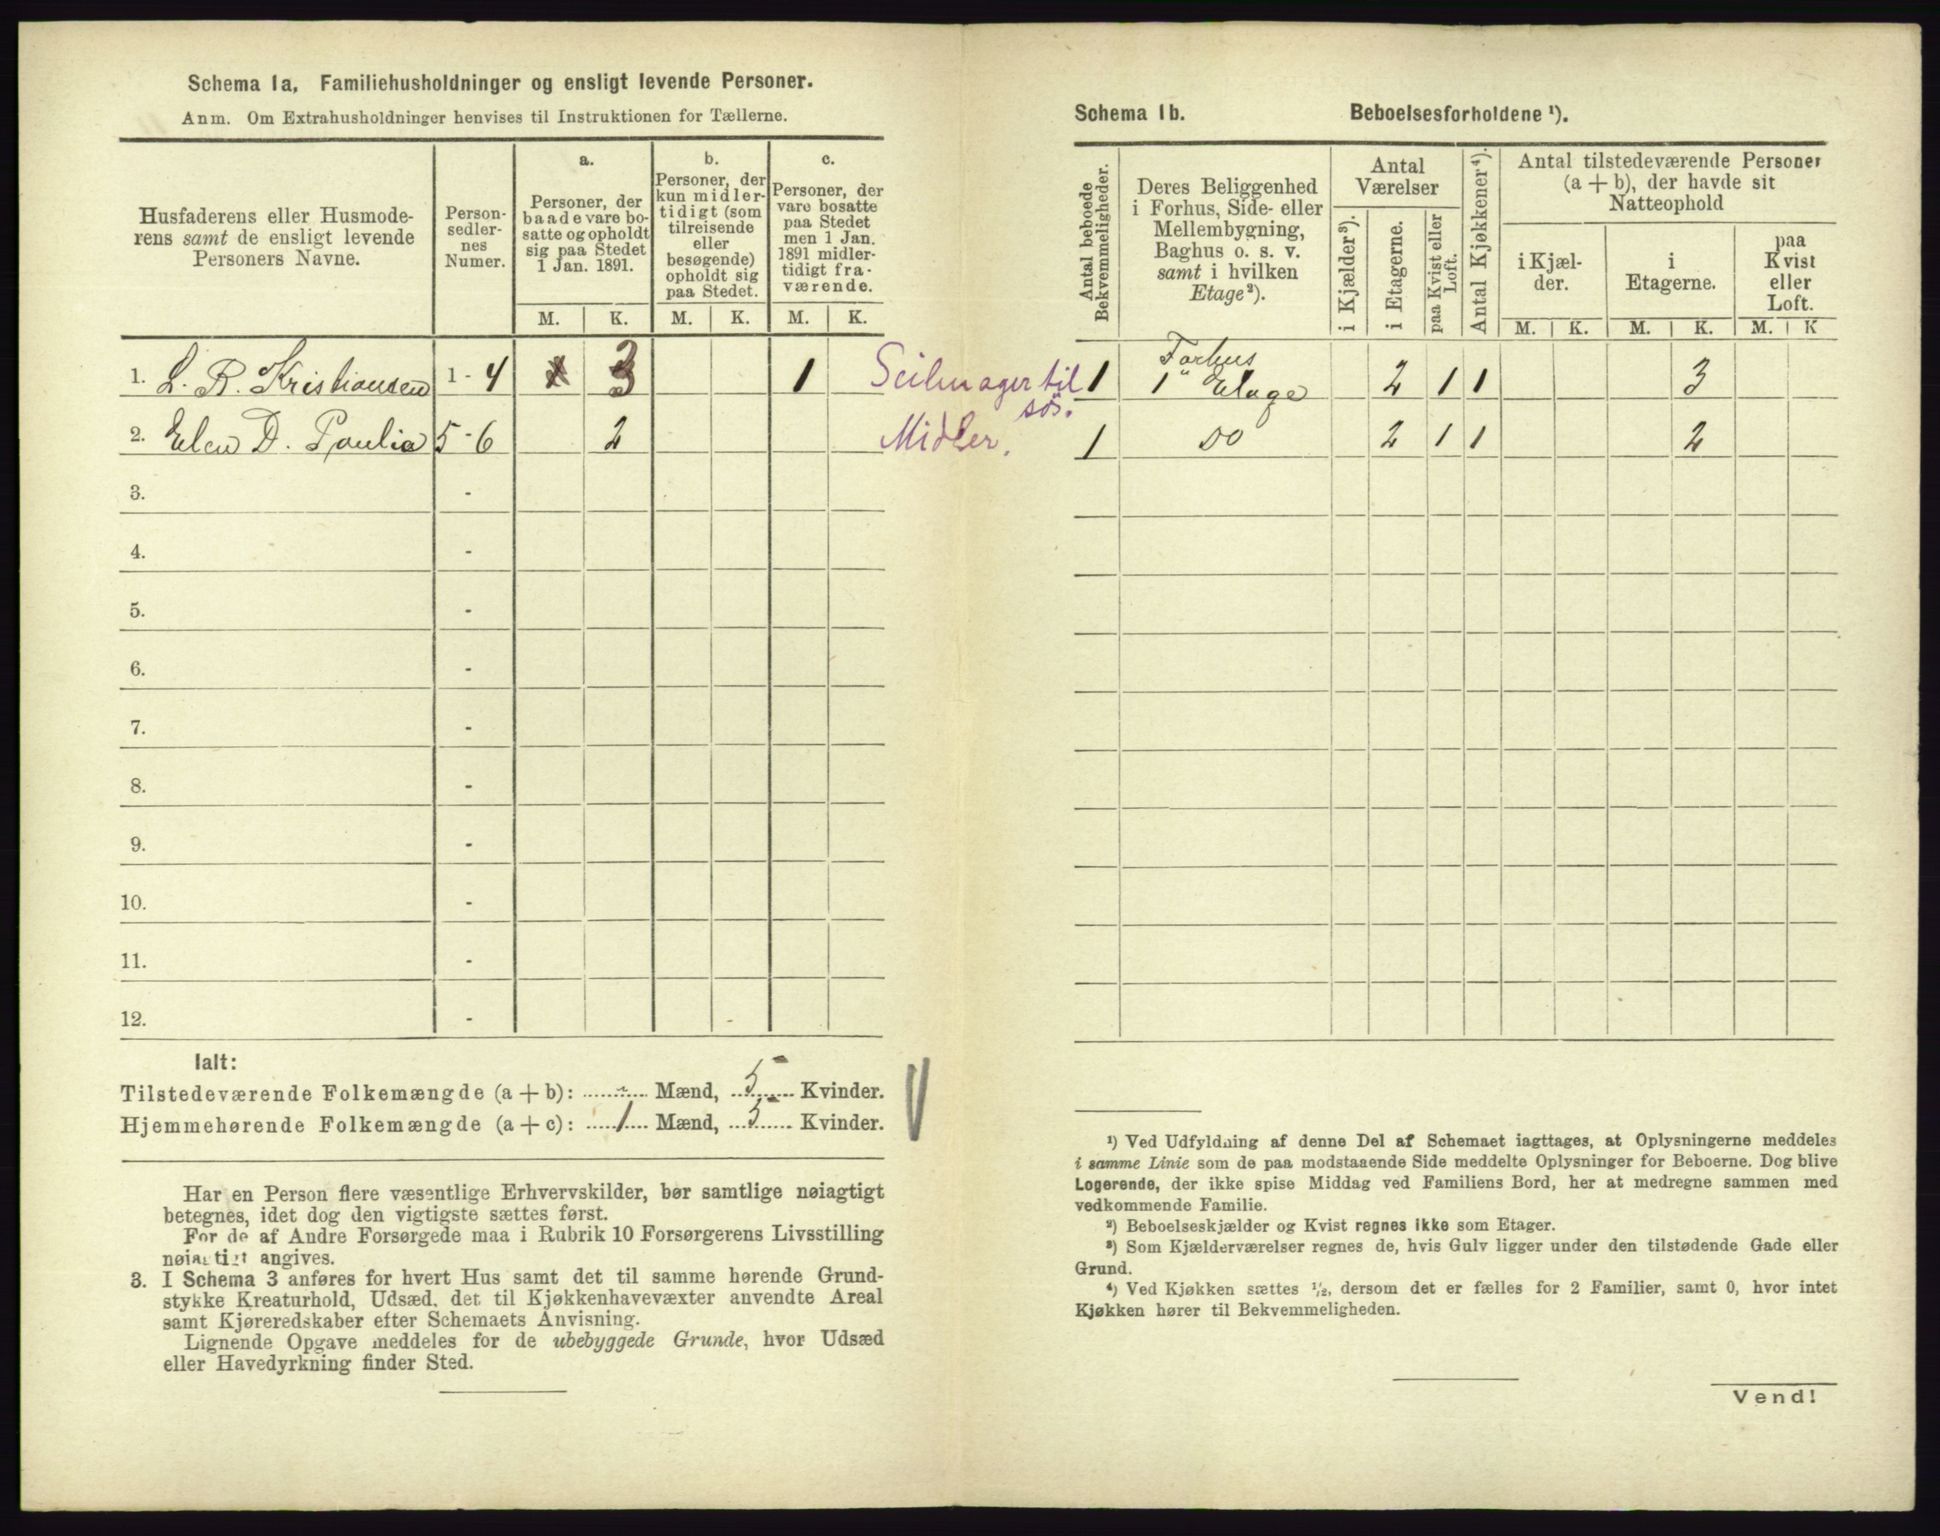 Schema 1a, Familiehusholdninger og ensligt levende Personer.
Anm. Om Extrahusholdninger henvises til Instruktionen for Tællerne.
Husfaderens eller Husmode-
rens samt de ensligt levende
Personers Navne.
Person-
sedler-
nes
Numer.
a.
Personer, der
baade vare bo-
satte og opholdt
sig paa Stedet
1 Jan. 1891.
b.
Personer, der
kun midler-
tidigt (som
tilreisende
eller
besøgende)
opholdt sig
paa Stedet.
c.
Personer, der
vare bosatte
paa Stedet
men 1 Jan.
1891 midler-
tidigt fra-
værende.
M. K. M. K. M. K.
1. L. R. Kristiansen 1 - 4 3 1 Seilmager til
søs.
2. Elen D. Paulia 5 - 6 2 Midler.
3. -
4. -
5. -
6. -
7. -
8. -
9. -
10. -
11. -
12. -
Ialt:
Tilstedeværende Folkemængde (a + b): - Mænd, 5 Kvinder.
Hjemmehørende Folkemængde (a + c): 1 Mænd, 5 Kvinder.
Har en Person flere væsentlige Erhvervskilder, bør samtlige nøiagtigt
betegnes, idet dog den vigtigste sættes først.
For de af Andre Forsørgede maa i Rubrik 10 Forsørgerens Livsstilling
nøiagtigt angives.
3. I Schema 3 anføres for hvert Hus samt det til samme hørende Grund-
stykke Kreaturhold, Udsæd, det til Kjøkkenhavevæxter anvendte Areal
samt Kjøreredskaber efter Schemaets Anvisning.
Lignende Opgave meddeles for de ubebyggede Grunde, hvor Udsæd
eller Havedyrkning finder Sted.
Schema 1b. Beboelsesforholdene ¹).
Antal beboede
Bekvemmeligheder.
Deres Beliggenhed
i Forhus, Side- eller
Mellembygning,
Baghus o. s. v.
samt i hvilken
Etage²).
Antal
Værelser
i Kjælder³).
i Etagerne.
paa Kvist eller
Loft.
Antal Kjøkkener⁴).
Antal tilstedeværende Personer
(a + b), der havde sit
Natteophold
i Kjæl-
der.
i
Etagerne.
paa
Kvist
eller
Loft.
M. K. M. K. M. K
1 Forhus
1" Etage 2 1 1 3
1 Do 2 1 1 2
¹) Ved Udfyldning af denne Del af Schemaet iagttages, at Oplysningerne meddeles
i samme Linie som de paa modstaaende Side meddelte Oplysninger for Beboerne. Dog blive
Logerende, der ikke spise Middag ved Familiens Bord, her at medregne sammen med
vedkommende Familie.
²) Beboelseskjælder og Kvist regnes ikke som Etager.
³) Som Kjælderværelser regnes de, hvis Gulv ligger under den tilstødende Gade eller
Grund.
⁴) Ved Kjøkken sættes ¹/₂, dersom det er fælles for 2 Familier, samt 0, hvor intet
Kjøkken hører til Bekvemmeligheden.
Vend!